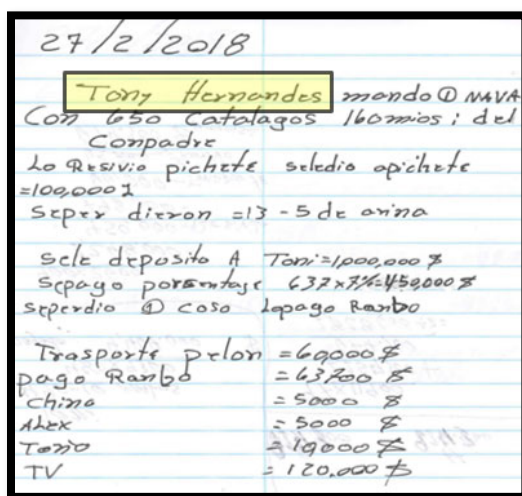 27/2/2018
Tony Hernandes mando ① NAVA
Con 650 Catalagos 160mios; del
Conpadre
Lo Resivio pichete seledio apichete
=100,000 $
seper dieron =13 - 5 de arina
sele deposito A Toni=1,000,000 $
sepago porsentage 637x7%=450,000 $
seperdio ① coso Lopago Ranbo
Trasporte pelon =60,000 $
pago Ranbo =63700 $
china =5000 $
ALEX =5000 $
Tonio =10,000 $
TV =120.000 $